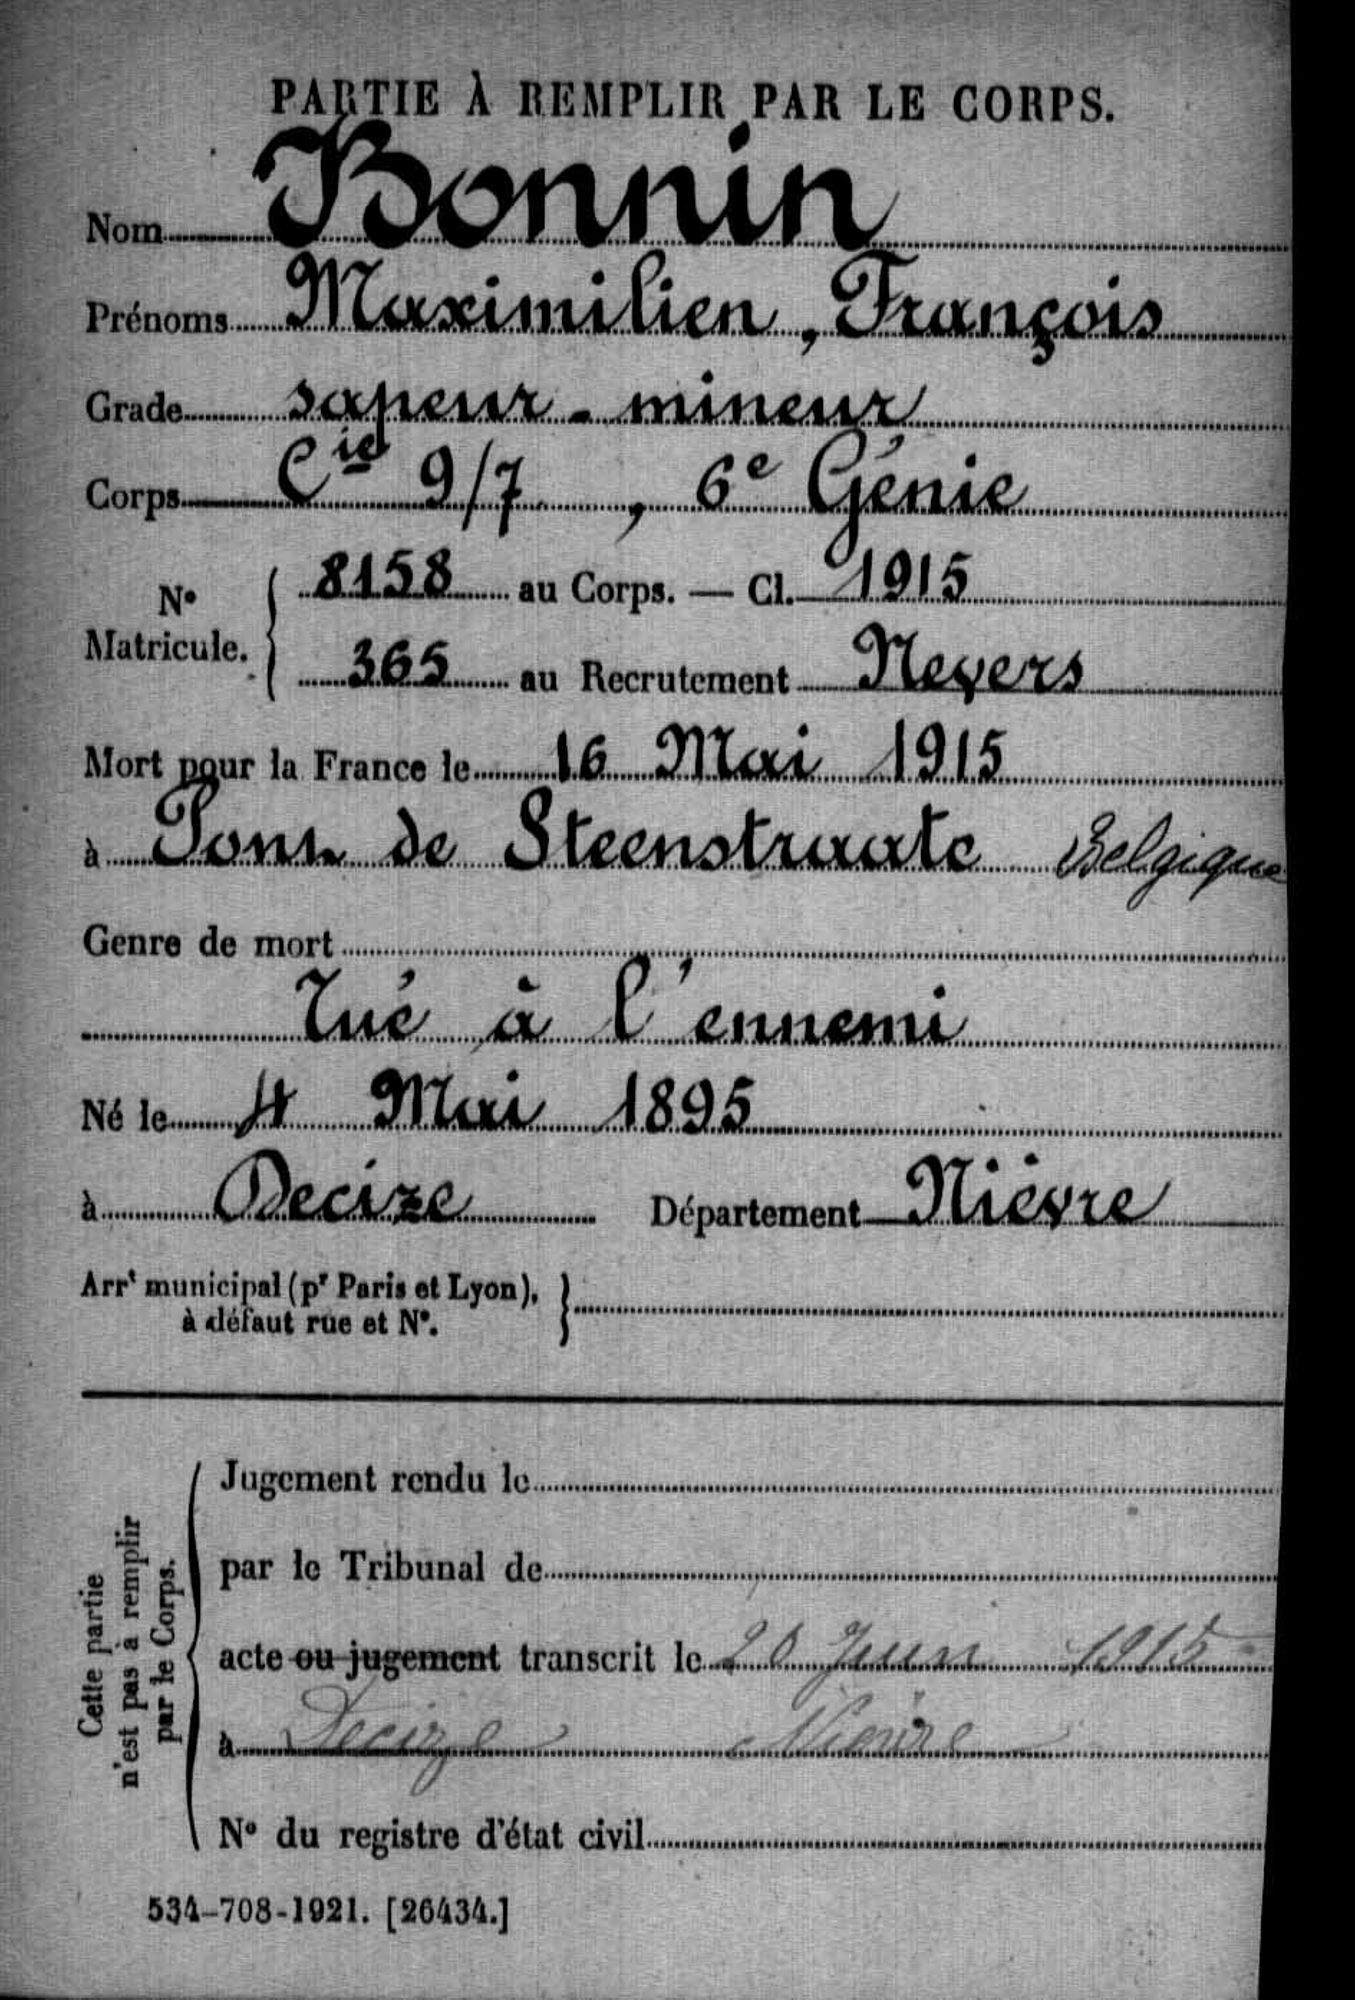 PARTIE À REMPLIR PAR LE CORPS.
Nom Bonnin
Prénoms Maximilien, François
Grade sapeur-mineur
Corps Cie 9/7, 6e Génie
No Matricule. { 8158 au Corps. — Cl. 1915
365 au Recrutement Nevers
Mort pour la France le 16 Mai 1915
à Pont de Steenstraate Belgique
Genre de mort
Tué à l'ennemi
Né le 4 Mai 1895
à Decize Département Nièvre
Arrt municipal (pr Paris et Lyon), }
à défaut rue et No.
Cette partie
n'est pas à remplir
par le Corps.
Jugement rendu le
par le Tribunal de
acte ou jugement transcrit le 20 Juin 1915
à Decize Nièvre
No du registre d'état civil
534-708-1921. [26434.]